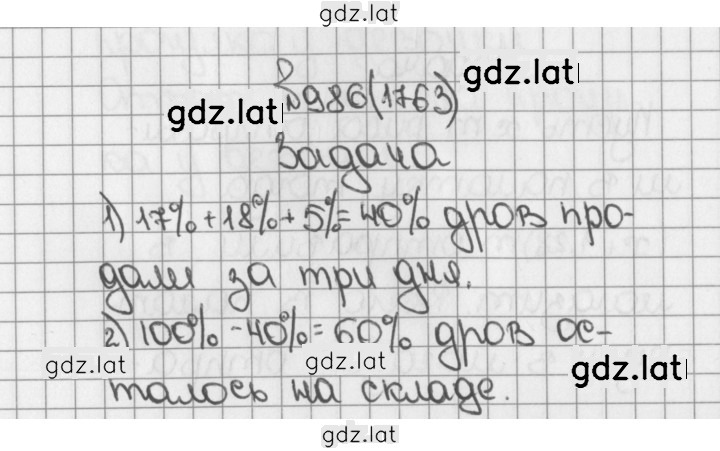 gdz.lat
gdz.lat
№986(1763)
gdz.lat
Задача
1) 17%+18%+5%=40% дров про-
дали за три дня.
2) 100%-40%=60% дров ос-
gdz.lat gdz.lat gdz.lat
талось на складе.
gdz.lat